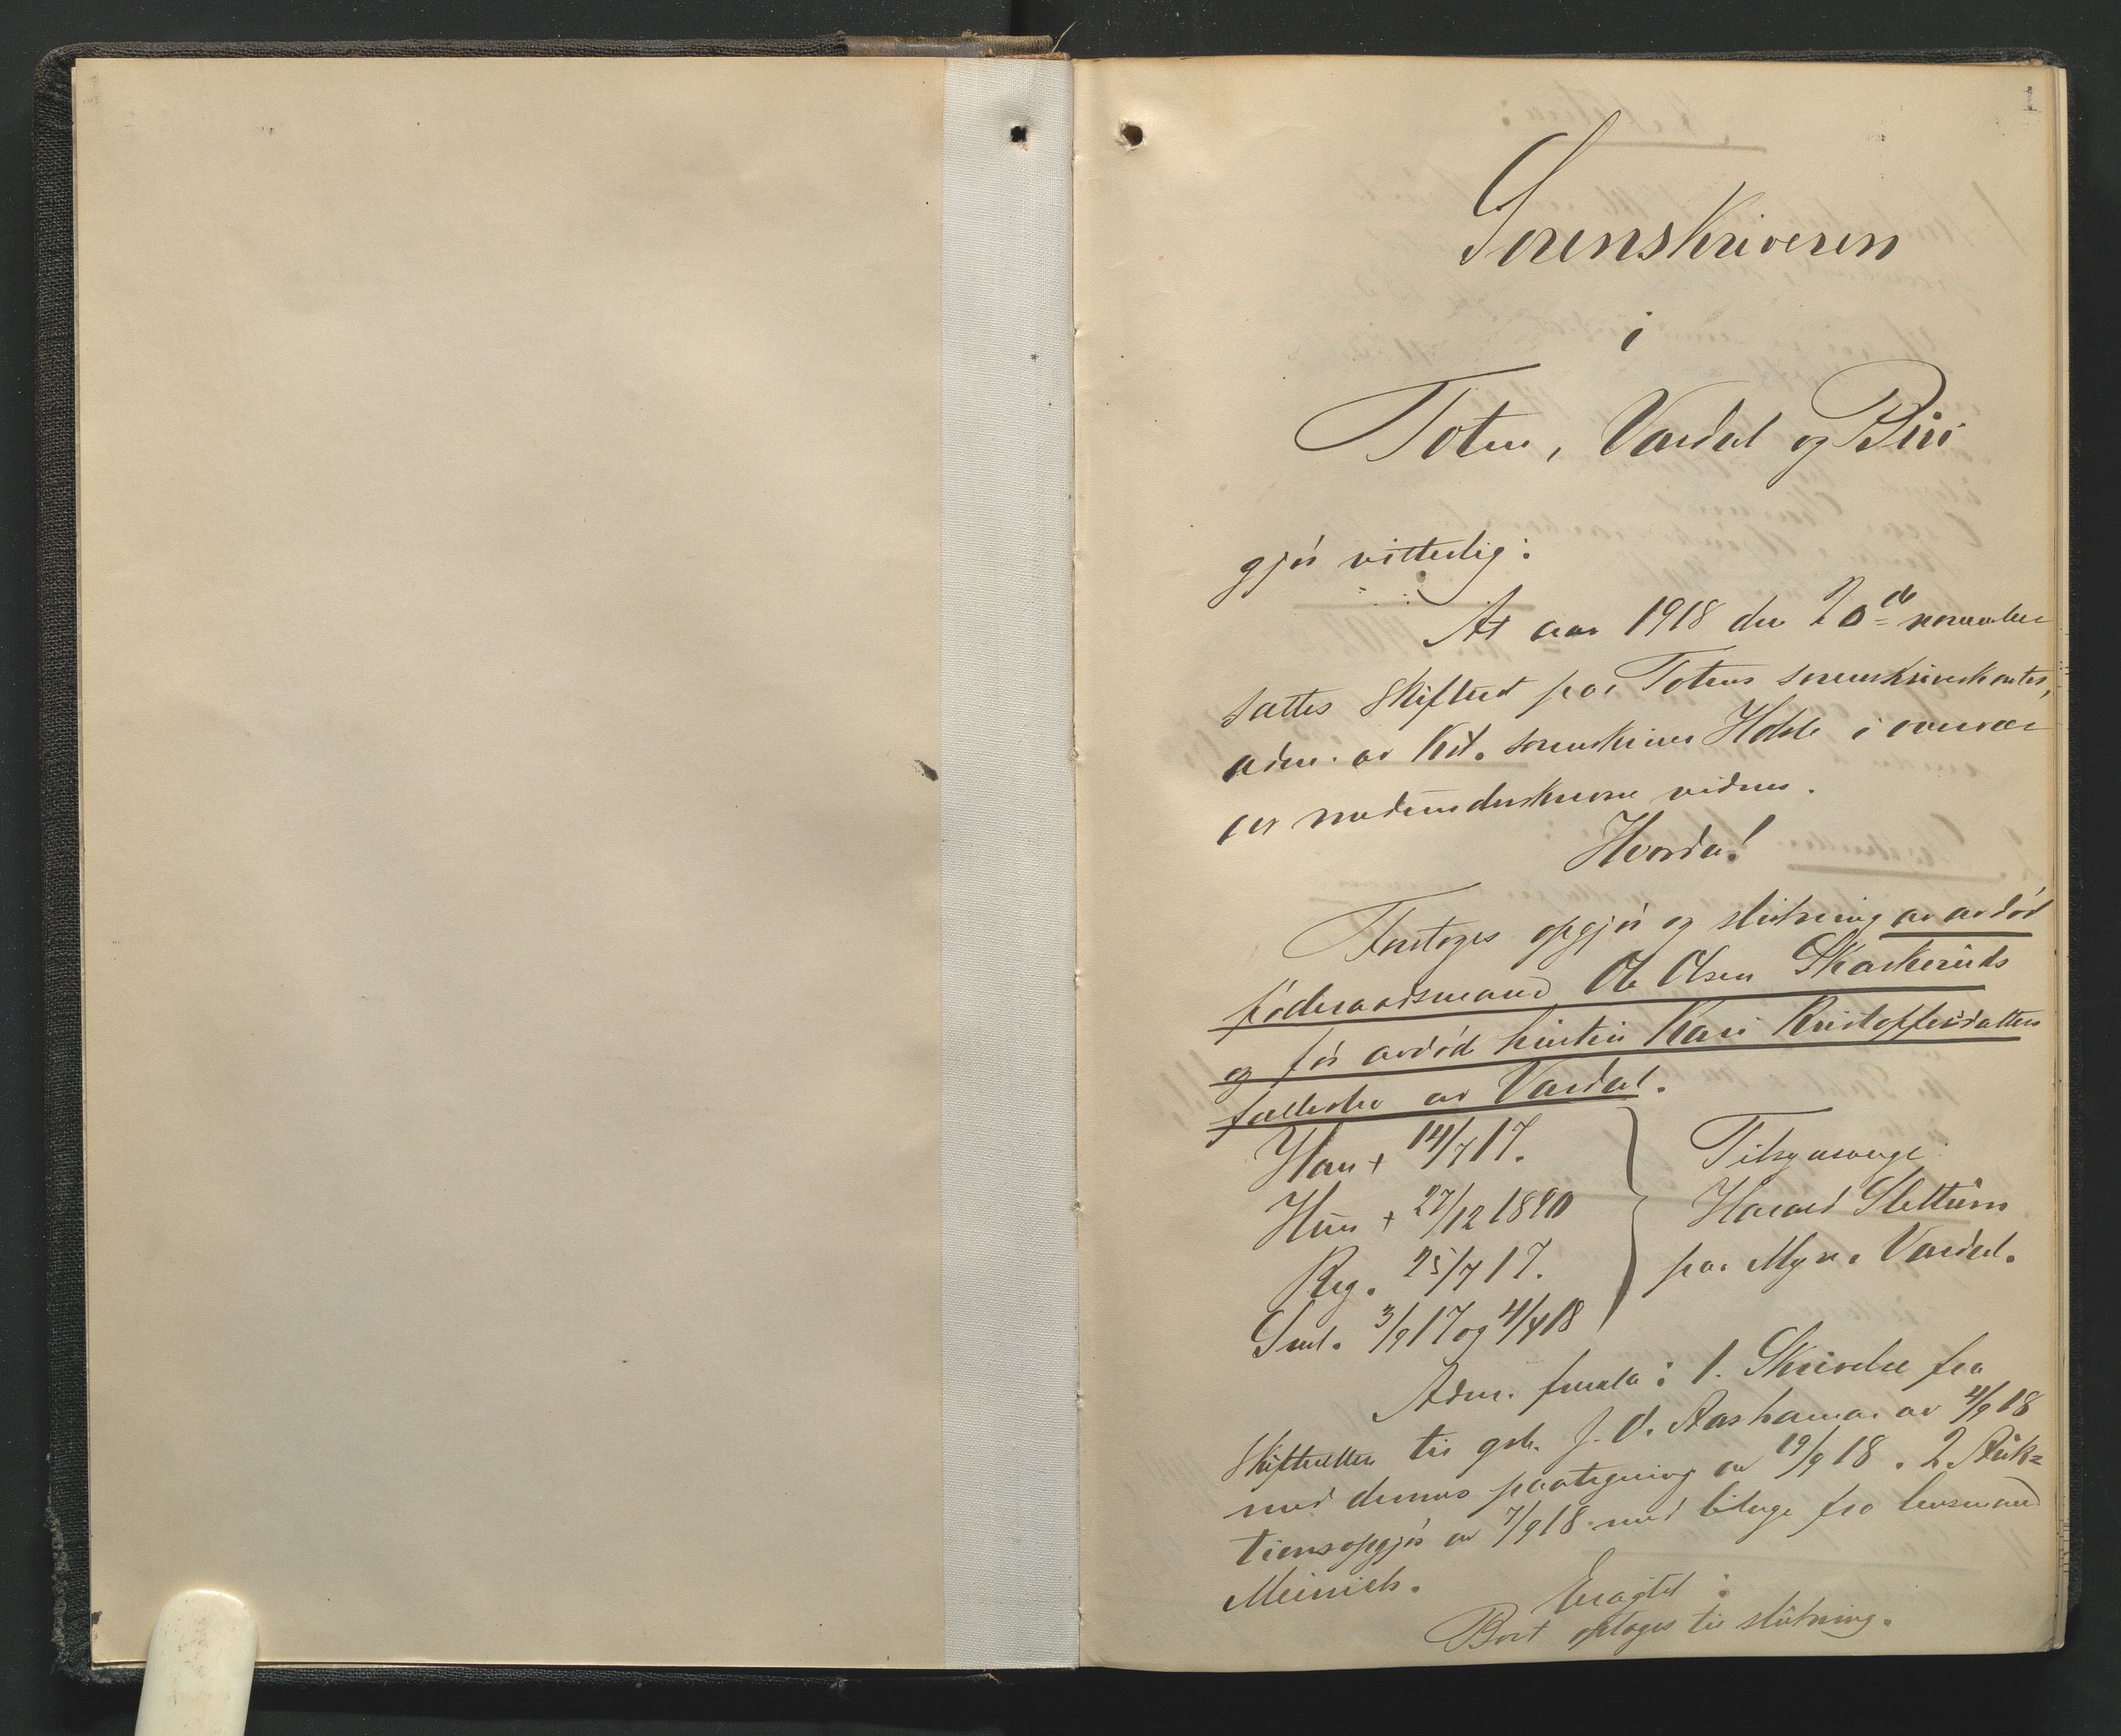 1
Sorenskriveren
i
Toten, Vardal og Biri
gjør vitterlig:
At aar 1918 den 20de november
sattes skifteret paa Totens sorenskriverkontor,
adm. av kst. sorenskriver Holste i overvær
av nedenunderskrevne vidner.
Hvorda!
Foretoges opgjør og slutning av avdød
føderaadsmand Ole Olsen Skarkeruds
og før avdød hustru Kari Kristoffersdatters
fællesbo av Vardal.
Han + 14/7 17.
Hun + 27/12 1890
Reg. 25/7 17.
Saml. 3/9 17 og 4/4 18
Tilsynsverge
Harald Slettum
paa Myre, Vardal.
Adm. fremla: 1. Skrivelse fra
skifteretten til gbr. J. O. Aashamar av 4/9 18
med dennes paategning av 19/9 18. 2 Auk=
tionsopgjør av 7/9 18 med bilage fra lensmand
Meinich.
Eragtet:
Boet optages til slutning.